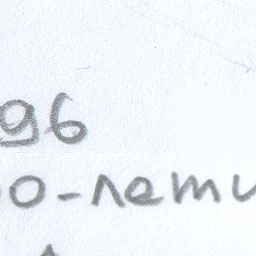 96
0-лети